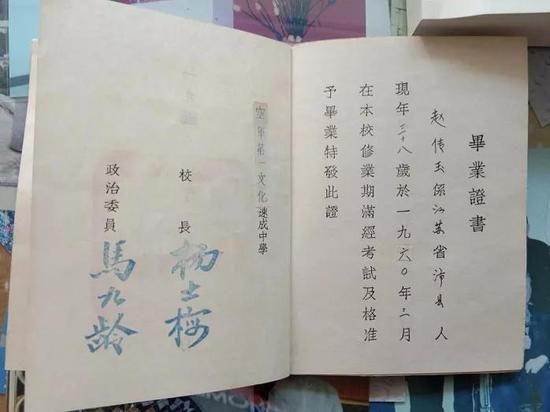 畢業證書
赵传玉係江苏省沛县人
現年三十八歲於一九六〇年二月
在本校修業期滿經考試及格准
予畢業特發此證
空軍第一文化速成中學
校長 杨士梅
政治委員 馬九龄